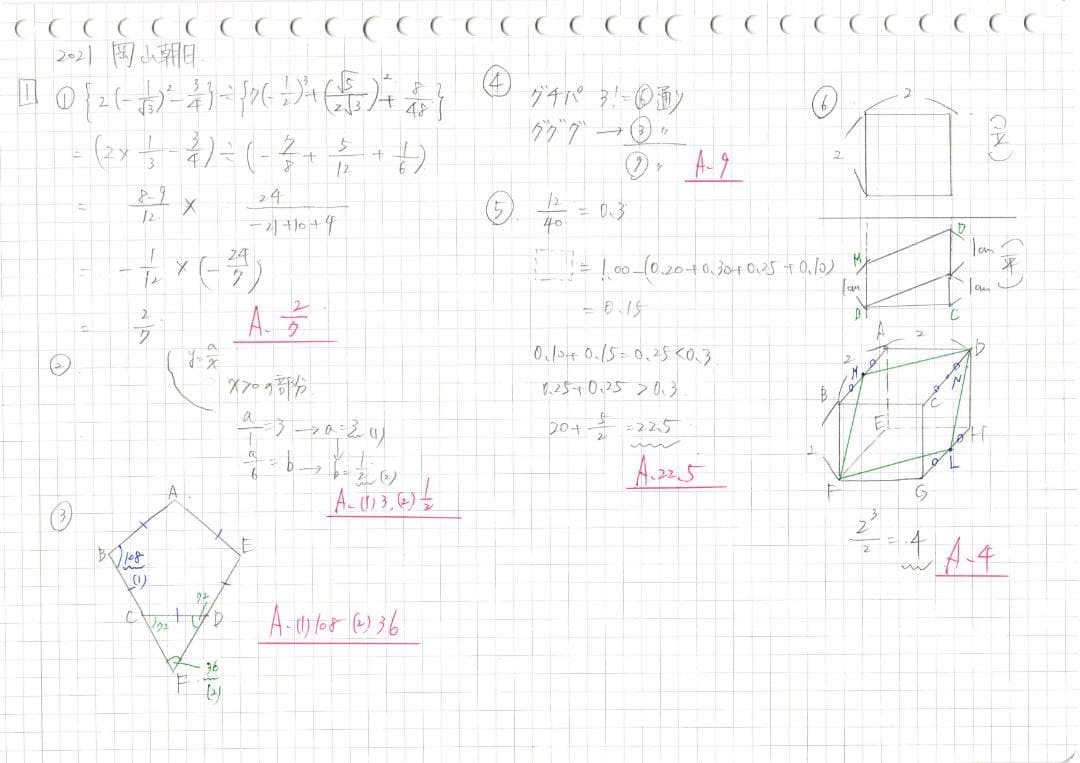 2021 岡山朝日
1
① {2(-1/√3)² - 3/4} ÷ {7(-1/2)³ + (√5/2√3)² + 8/48}
= (2 × 1/3 - 3/4) ÷ (-7/8 + 5/12 + 1/6)
= 8-9/12 × 24/-21+10+4
= -1/12 × (-24/7)
= 2/7
A. 2/7
②
y = a/x
x>0の部分
a/1 = 3 → a = 3 (1)
a/6 = b → b = 1/2 (2)
A. (1) 3, (2) 1/2
③
A
B
108
(1)
E
C
72
72
D
F
36
(2)
A. (1) 108 (2) 36
④
グチパ 3! = ⑥通り
グググ → ③ 〃
⑨ 〃
A. 9
⑤
12/40 = 0.3
= 1.00 - (0.20 + 0.30 + 0.25 + 0.10)
= 0.15
0.10 + 0.15 = 0.25 < 0.3
0.25 + 0.25 > 0.3
20 + 5/2 = 22.5
A. 22.5
⑥
2
2
D
M
1cm
1cm
1cm
C
A
2
D
2
M
N
B
C
E
H
2
L
F
G
2³/2 = 4
A. 4